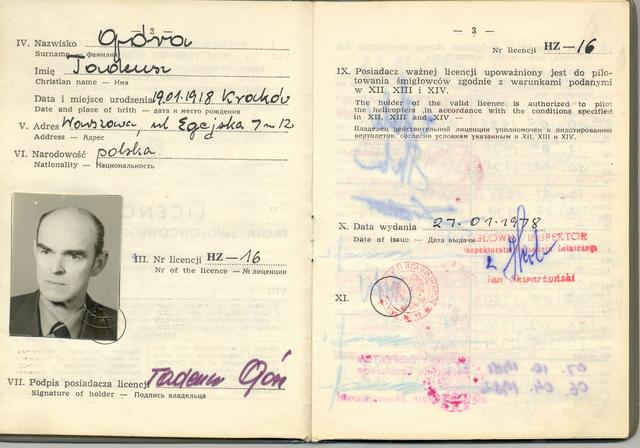 — 2 —
IV. Nazwisko Góra
Surname — фамилия
Imię Tadeusz
Christian name — Имя
Data i miejsce urodzenia 19.01.1918 Kraków
Date and place of birth — дата и место рождения
V. Adres Warszawa, ul Egejska 7 m 12
Address — Адрес
VI. Narodowość polska
Nationality — Национальность
III. Nr licencji HZ — 16
Nr of the licence — № лиценции
VII. Podpis posiadacza licencji Tadeusz Góra
Signature of holder — Подпись владельца
— 3 —
Nr licencji HZ — 16
IX. Posiadacz ważnej licencji upoważniony jest do pilo-
towania śmigłowców zgodnie z warunkami podanymi
w XII, XIII i XIV.
The holder of the valid licence is authorized to pilot
the helicopters in accordance with the conditions specified
in XII, XIII and XIV —
Владелец действительной лиценции уполномочен к пилотированию
вертолетов, согласно условиям указанным в XII, XIII и XIV.
X. Data wydania 27.01.1978
Date of issue — Дата выдачи
GŁÓWNY INSPEKTOR
Inspektoratu Lotniczego
z
Jan Skwarżyński
XI.